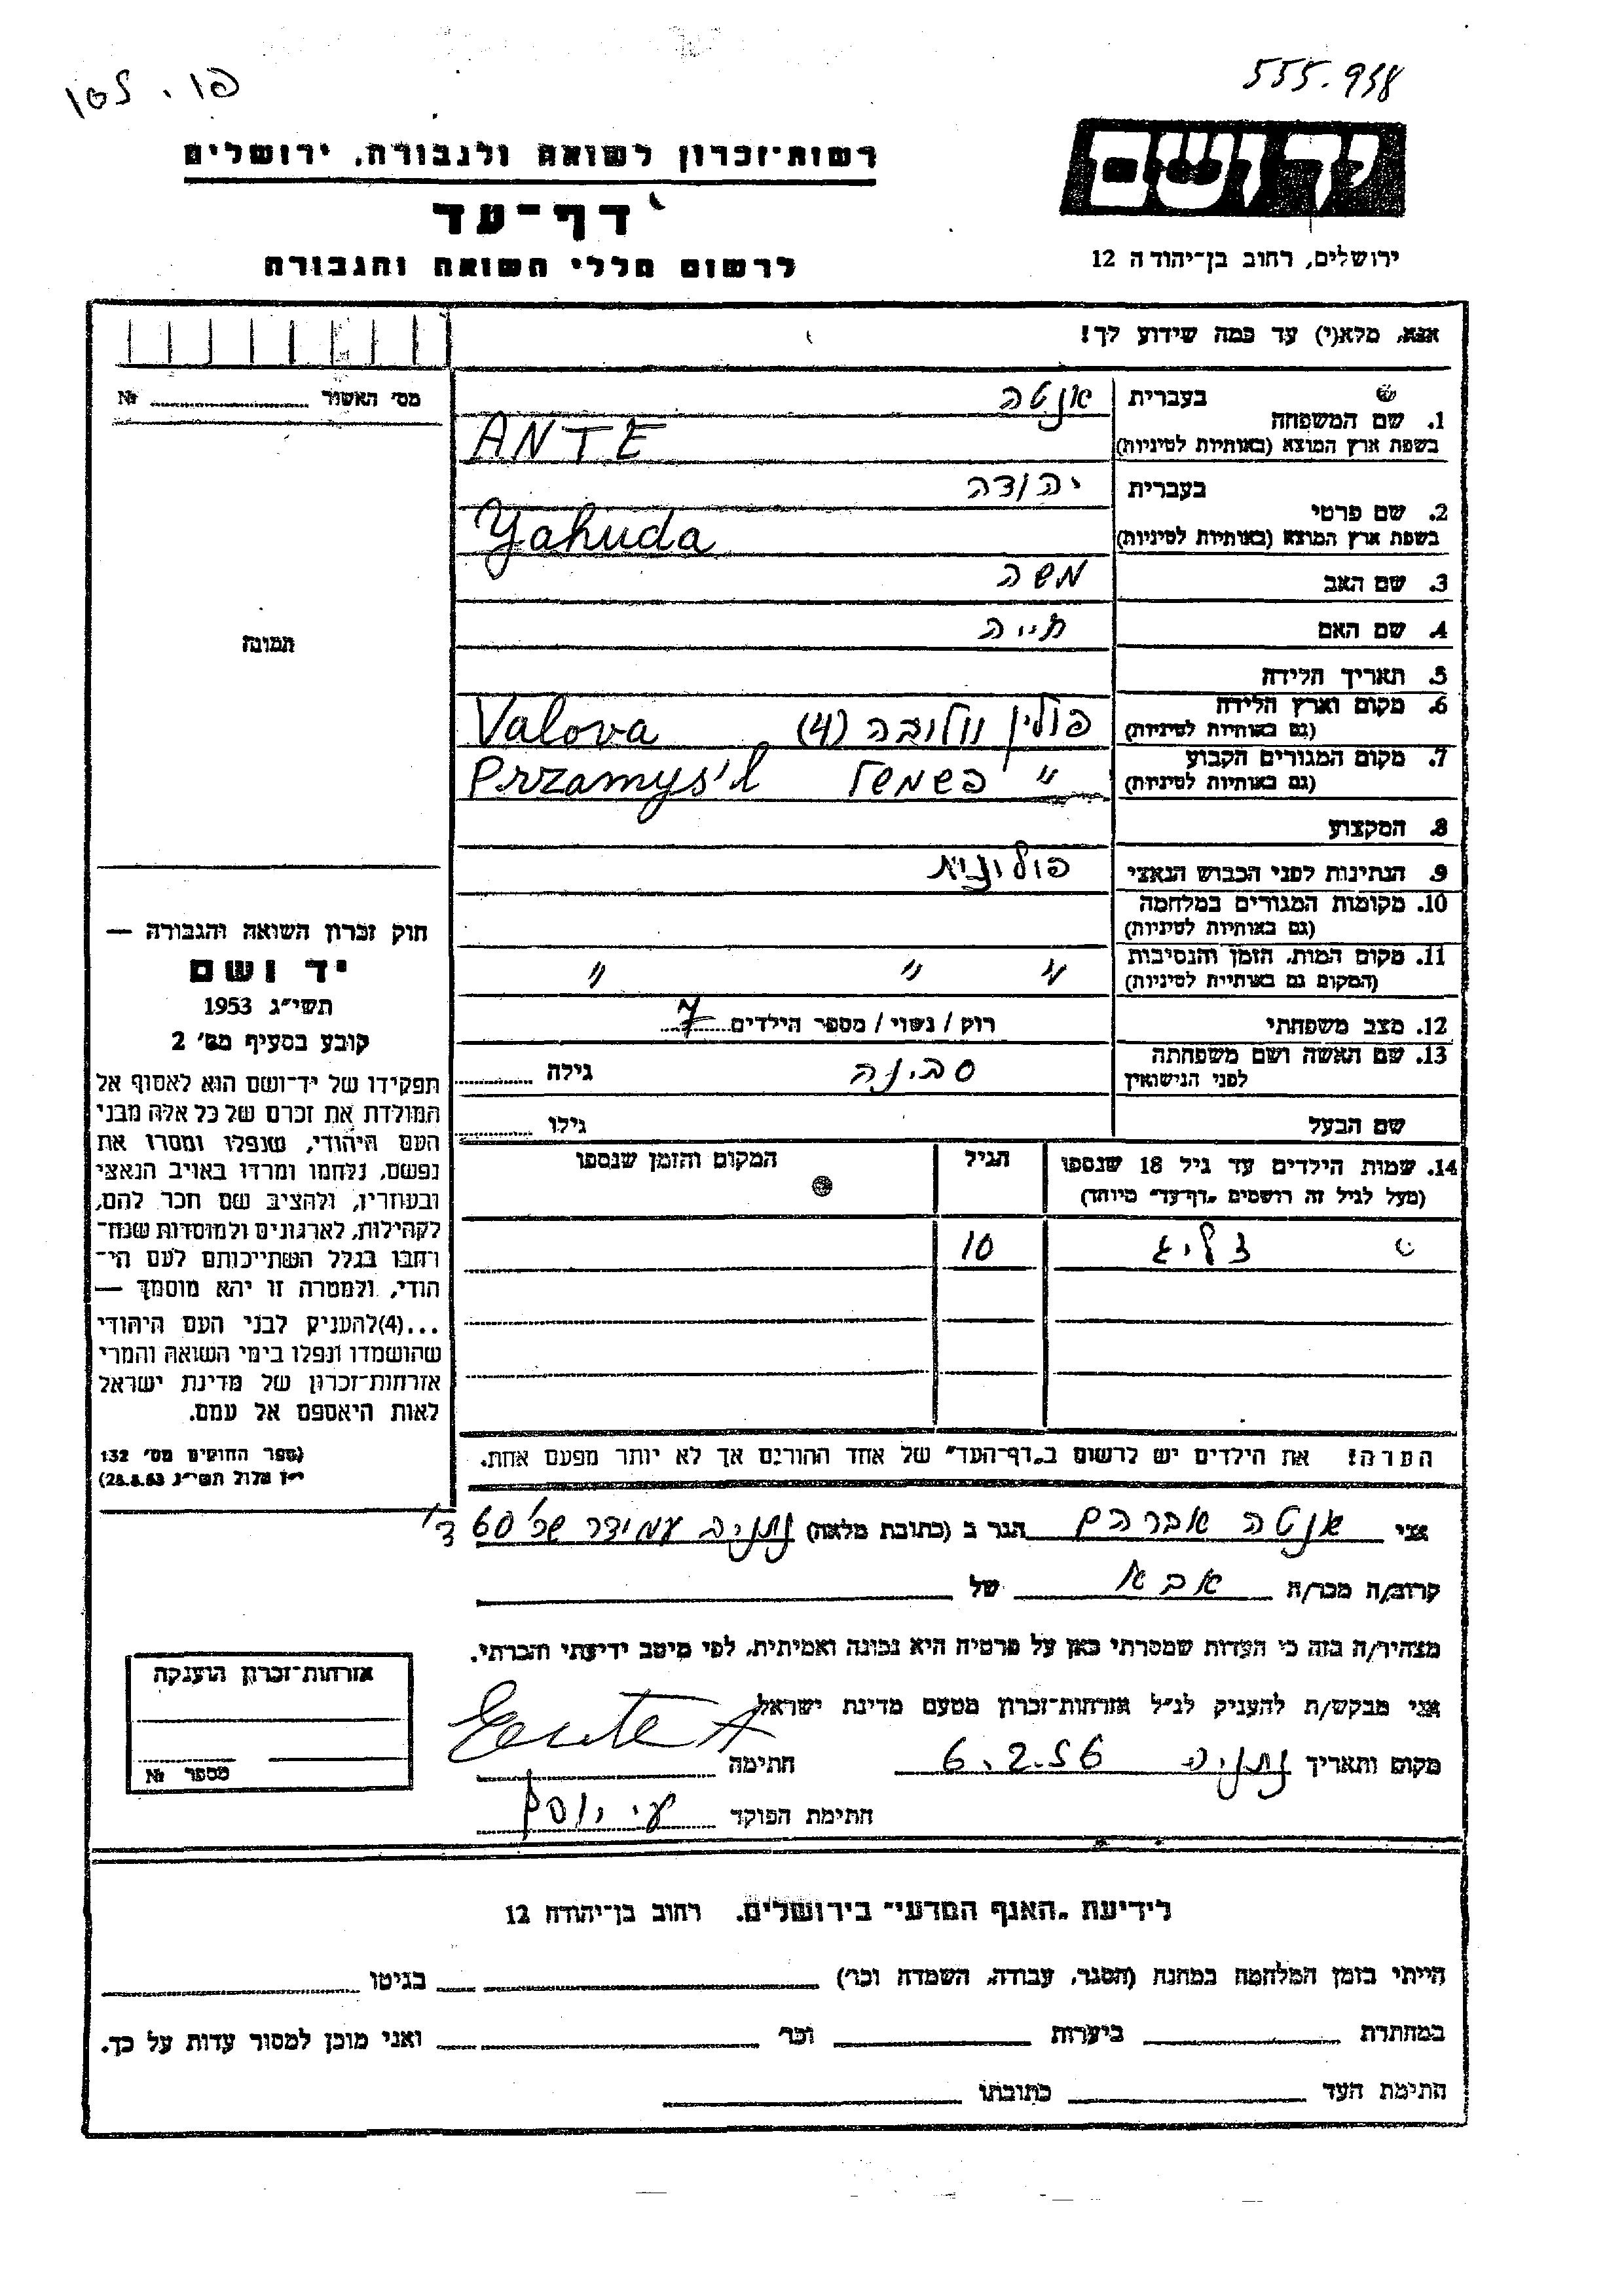 555.938
יד ושם
ירושלים, רחוב בן־יהודה 12
רשות־זכרון לשואה ולגבורה, ירושלים
דף־עד
לרשום חללי השואה והגבורה
אנא, מלא(י) עד כמה שידוע לך!
מס' האשור № 
תמונה
1. שם המשפחה בעברית אנטה
בשפת ארץ המוצא (באותיות לטיניות) ANTE
2. שם פרטי בעברית יהודה
בשפת ארץ המוצא (באותיות לטיניות) Yahuda
3. שם האב משה
4. שם האם חייה
5. תאריך הלידה
6. מקום וארץ הלידה פולין וולובה (4) Valova
(גם באותיות לטיניות)
7. מקום המגורים הקבוע " פשמשל Przamyśl
(גם באותיות לטיניות)
8. המקצוע
9. הנתינות לפני הכבוש הנאצי פולונית
10. מקומות המגורים במלחמה
(גם באותיות לטיניות)
11. מקום המות, הזמן והנסיבות " " "
(המקום גם באותיות לטיניות)
12. מצב משפחתי רוק / נשוי / מספר הילדים 7
13. שם האשה ושם משפחתה סבינה גילה
לפני הנישואין
שם הבעל גילו
14. שמות הילדים עד גיל 18 שנספו הגיל המקום והזמן שנספו
(מעל לגיל זה רושמים „דף־עד" מיוחד)
זליג 10
הערה! את הילדים יש לרשום ב„דף־העד" של אחד ההורים אך לא יותר מפעם אחת.
חוק זכרון השואה והגבורה —
יד ושם
תשי"ג 1953
קובע בסעיף מס' 2
תפקידו של יד־ושם הוא לאסוף אל
המולדת את זכרם של כל אלה מבני
העם היהודי, שנפלו ומסרו את
נפשם, נלחמו ומרדו באויב הנאצי
ובעוזריו, ולהציב שם וזכר להם,
לקהילות, לארגונים ולמוסדות שנח־
רבו בגלל השתייכותם לעם הי־
הודי, ולמטרה זו יהא מוסמך —
...(4) להעניק לבני העם היהודי
שהושמדו ונפלו בימי השואה והמרי
אזרחות־זכרון של מדינת ישראל
לאות היאספם אל עמם.
(ספר החוקים מס' 132
י"ז אלול תשי"ג 28.8.53)
אני אנטה אברהם הגר ב (כתובת מלאה) נתניה עמידר שכ' 60 ד'
קרוב/ה מכר/ה אבא של
מצהיר/ה בזה כי העדות שמסרתי כאן על פרטיה היא נכונה ואמיתית, לפי מיטב ידיעתי והכרתי.
אני מבקש/ת להעניק לנ"ל אזרחות־זכרון מטעם מדינת ישראל
מקום ותאריך נתניה 6.2.56 חתימה
חתימת הפוקד
אזרחות־זכרון הוענקה
מספר №
לידיעת „האגף המדעי" בירושלים, רחוב בן־יהודה 12
הייתי בזמן המלחמה במחנה (הסגר, עבודה, השמדה וכו') בגיטו
במחתרת ביערות וכו' ואני מוכן למסור עדות על כך.
חתימת העד כתובתו